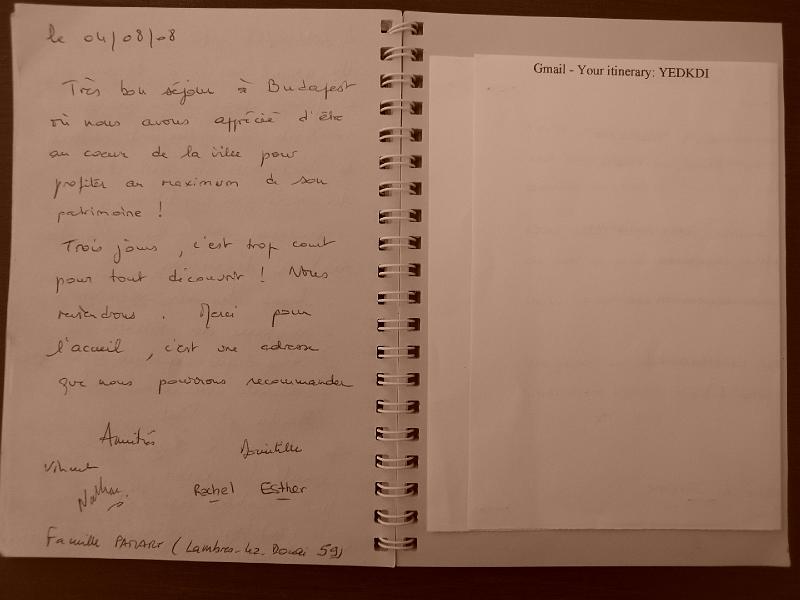 le 04/08/08
Très bon séjour à Budapest
où nous avons apprécié d'être
au coeur de la ville pour
profiter au maximum de son
patrimoine !
Trois jours, c'est trop court
pour tout découvrir ! Nous
reviendrons. Merci pour
l'accueil, c'est une adresse
que nous pourrons recommander
Amitiés
Vincent
Nathan
Rachel Esther
Famille (Lambres-lez-Douai 59)
Gmail - Your itinerary: YEDKDI